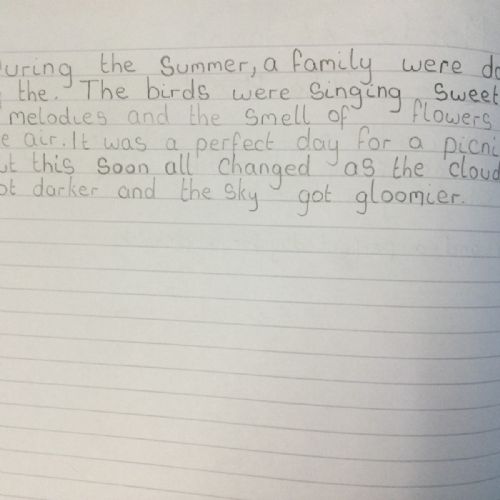 uring the Summer, a family were do
the. The birds were Singing Sweet
melodies and the Smell of flowers
e air. It was a perfect day for a picni
ut this Soon all Changed as the cloud
ot darker and the Sky got gloomier.